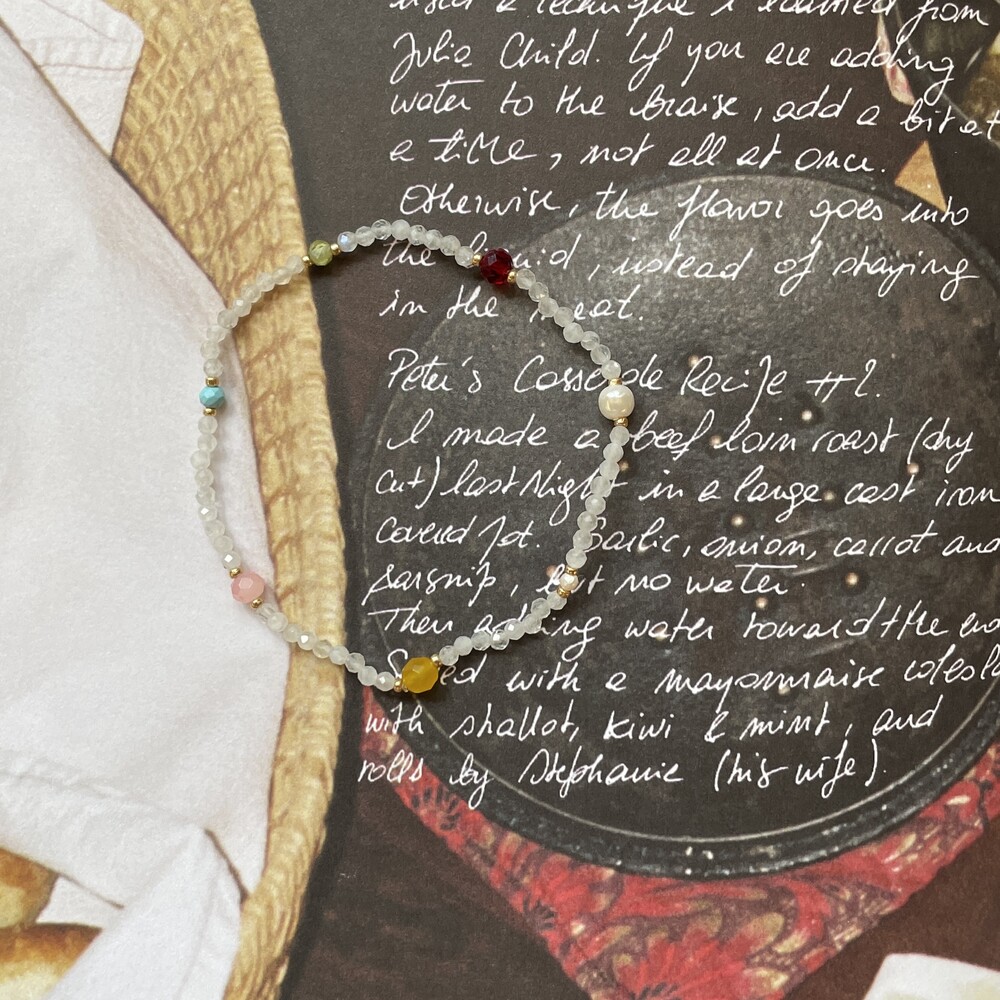 used a technique I learned from
Julia Child. If you are adding
water to the braise, add a bit at
a time, not all at once.
Otherwise, the flavor goes into
the liquid, instead of staying
in the meat.
Peter's Casserole Recipe #2.
I made a beef loin roast (dry
cut) last Night in a large cast iron
covered pot. Garlic, onion, carrot and
parsnip, but no water.
Then adding water toward the end
Served with a mayonnaise
with shallot, kiwi & mint, and
rolls by Stephanie (his wife).